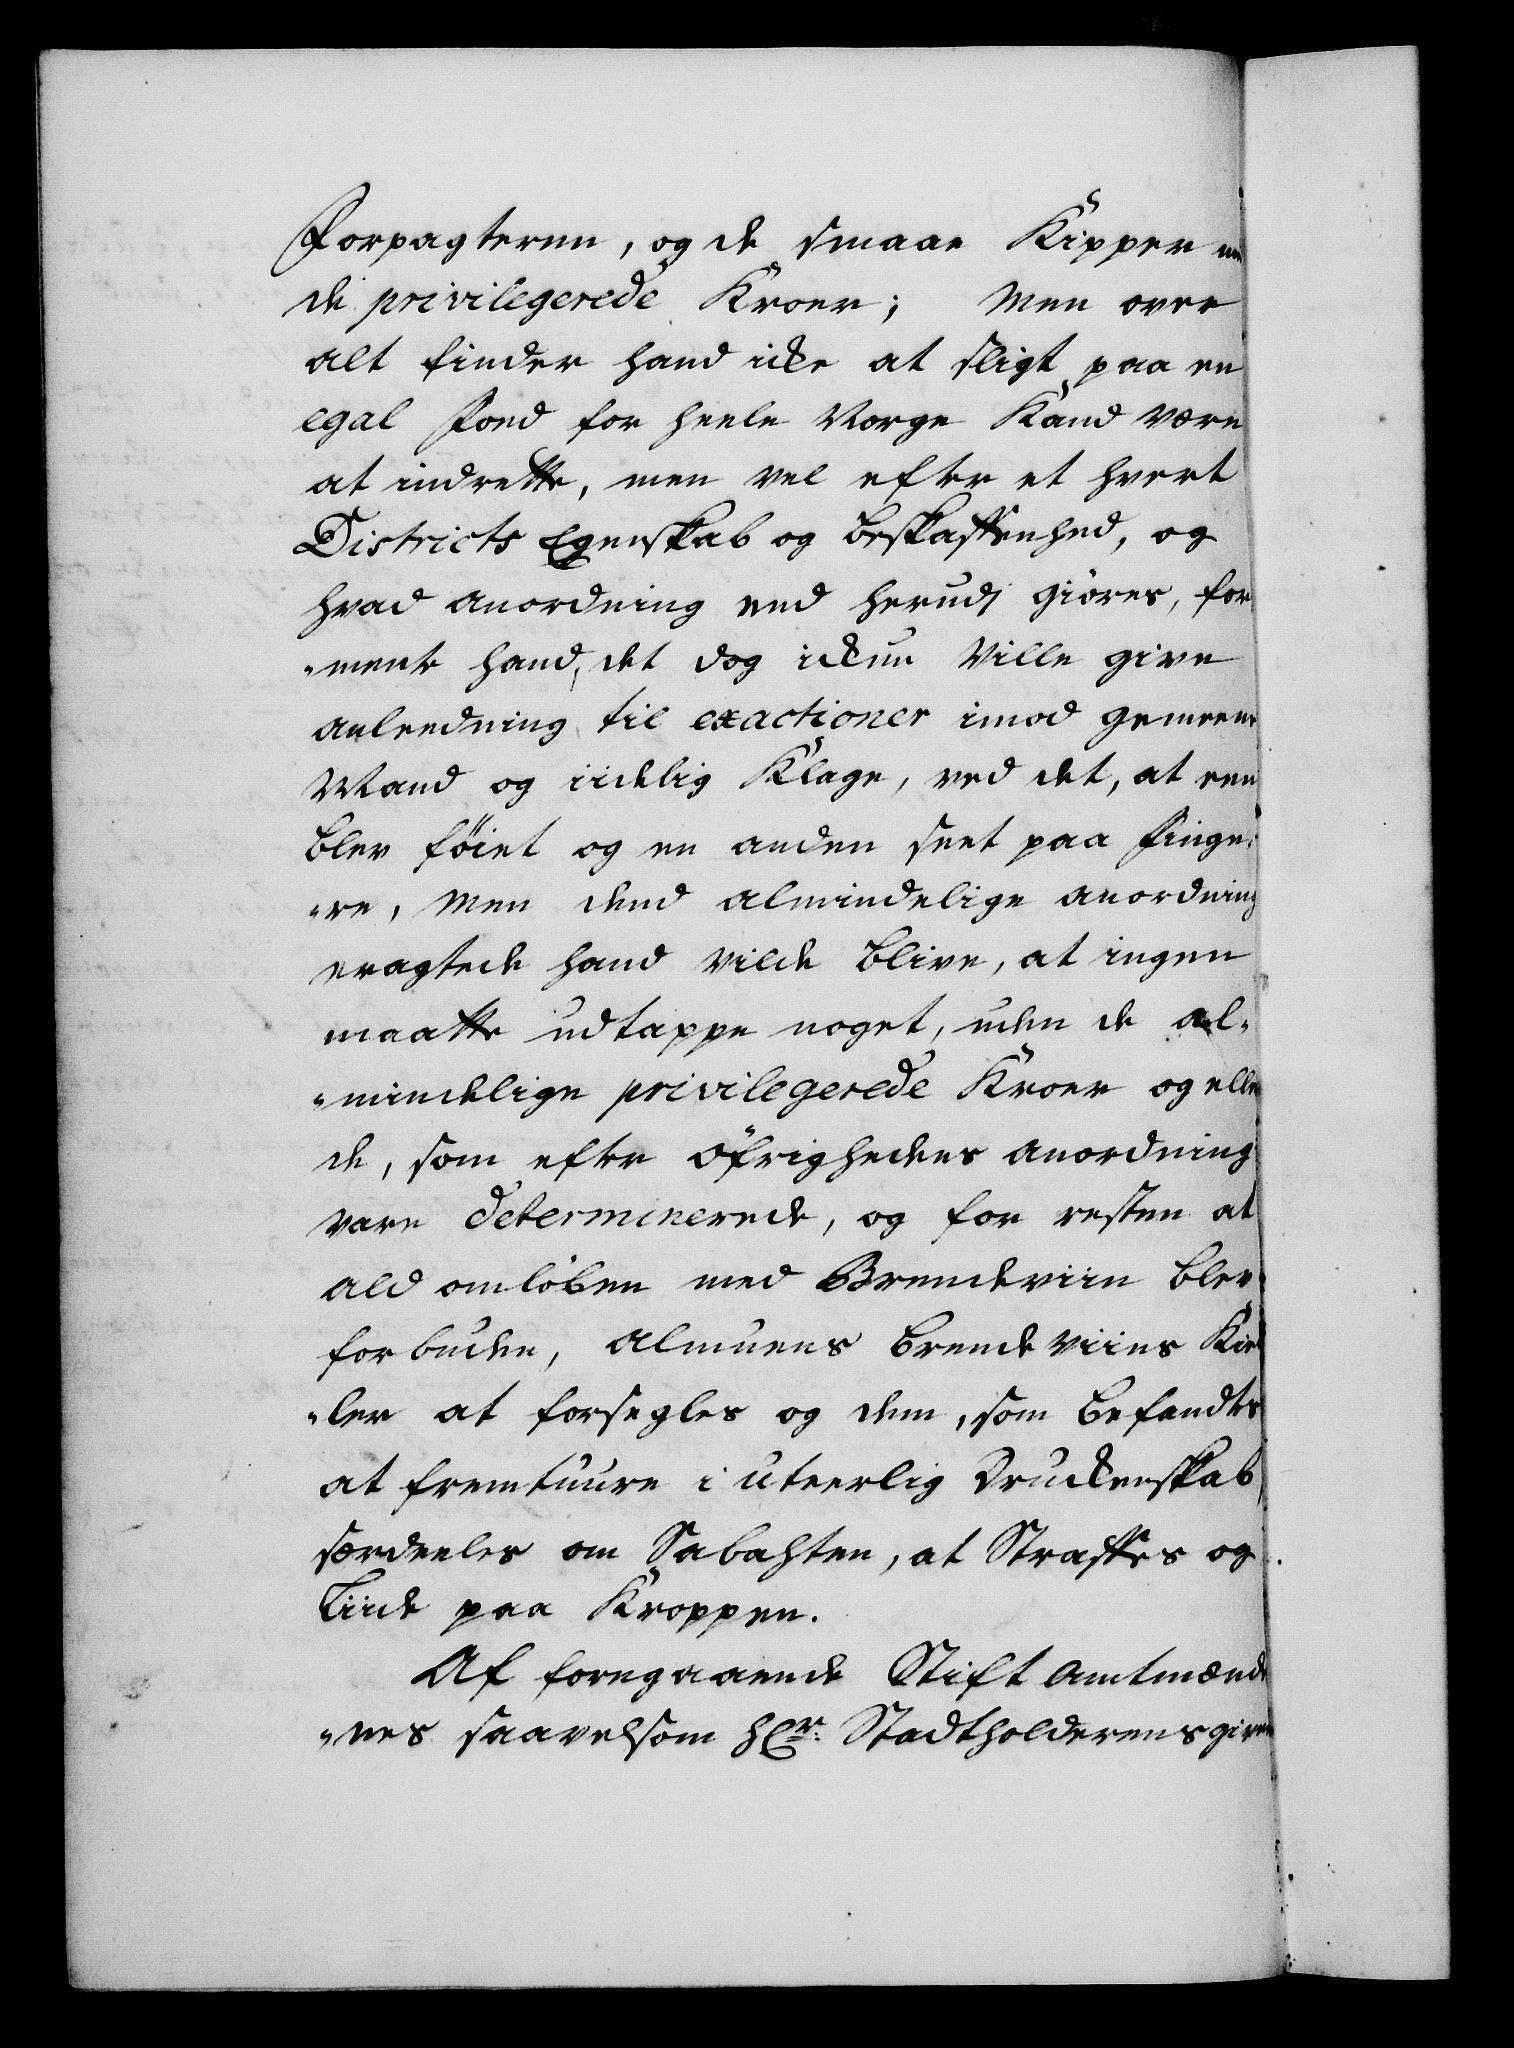 Forpagteren, og de smaae Kipper
de privilegerede Kroer; Men over
alt finder hand icke at sligt paa en
egal Foed for heele Norge Kand være
at indrette, men vel efter et hvert
Districts Egenskab og beskaffenhed, og
hvad anordning end herudj giöres, for
„meente hand, det dog ickun Ville give
anleedning til exactioner imod gemeene
Mand og iidelig Klage, ved det, at een
blev föiet og en anden seet paa finge„
„re, Men dend almindelige anordning
eragtede hand vilde blive, at ingen
maatte udtappe noget, uden de al„
„mindelige privilegerede Kroer og elle
de, som efter Öfrighedens anordning
vare determinerede, og for resten at
ald omlöben med Brendeviin blev
forbuden, Almuens brende Viins Kied
„ler at forsegles og dem, som befandtes
at fremtuure i uteerlig Druckenskab
særdeeles om Sabahten, at Straffes og
liide paa Kroppen.
Af foregaaende Stift Amtmænde
„nes saavelsom Hr. Stadtholderens given